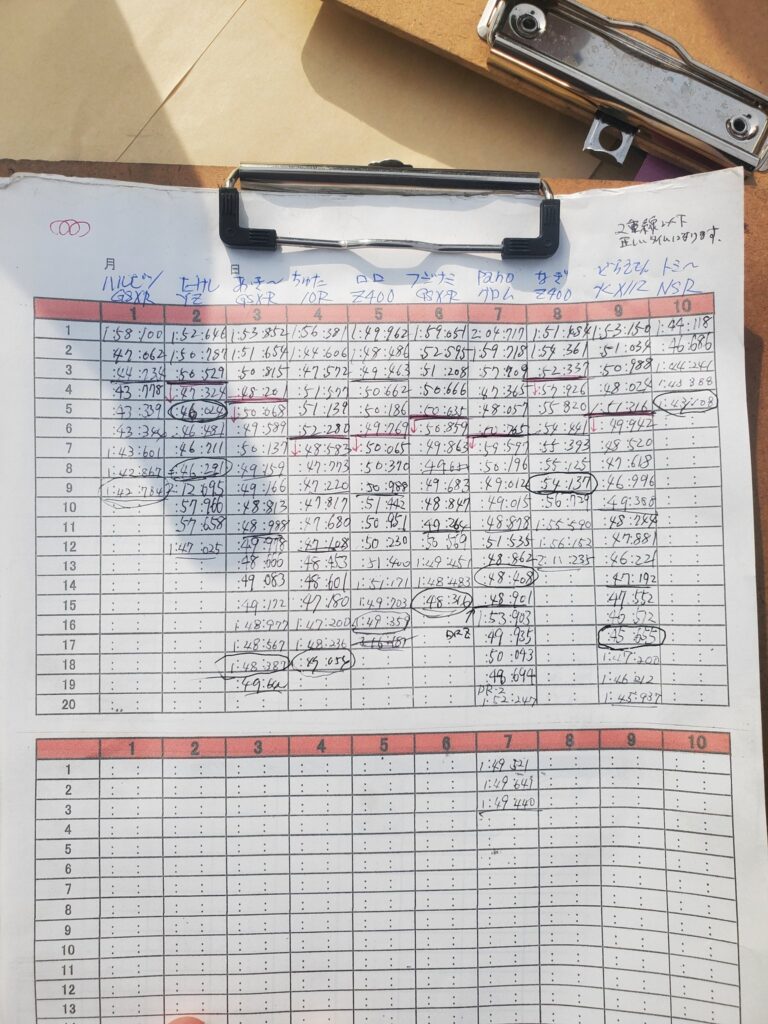 2重線以下
正しいタイムになります。
月 日
ハルピン たけし あき〜 ちゅた ロロ フジナミ なぎ トミー
GSXR YZ GSXR 10R Z400 GSXR グロム Z400 NSR
1 2 3 4 5 6 7 8 9 10
1 1:58:100 1:52:646 1:53:852 1:56:381 1:49:962 1:59:051 2:04:717 1:51:484 1:53:150 1:44:118
2 47:062 1:50:787 1:51:654 1:44:606 1:48:486 52:595 1:59:718 1:54:361 51:034 46:686
3 :44:734 :50:529 :50:815 47:572 :49:463 :51:208 :57:909 :52:337 :50:988 1:44:241
4 :43:778 :47:324 :48:201 :51:577 :50:662 :50:666 :47:365 :57:926 :48:024
5 :43:339 :46:024 :50:068 :51:139 :50:186 :50:631 :48:057 :55:820 :51:316 1:43:108
6 :46:481 :49:589 :52:280 :49:769 :50:859 :49:942
7 1:43:601 :46:711 :50:137 :48:583 :50:065 :49:863 :59:597 :55:393 :48:520
8 1:42:867 :46:291 :49:459 :47:773 :50:370 :50:196 :55:125 :47:618
9 1:42:784 2:12:695 :49:166 :47:220 :50:988 :49:683 :49:012 :54:137 :46:996
10 :57:966 :48:813 :47:817 :51:442 :48:847 :49:015 :56:729 :49:388
11 :57:658 :48:988 :47:680 :50:951 :49:264 :48:878 1:55:590 :48:744
12 1:47:025 :49:978 :47:108 :50:230 :50:569 :51:535 1:56:152 :47:881
13 :48:660 :48:453 :51:400 1:49:451 :48:862 2:11:235 :46:221
14 :49:083 :48:601 1:51:171 1:48:483 :48:408 :47:192
15 :49:172 :47:180 1:49:703 :48:316 :48:901 :47:552
16 1:48:977 1:47:200 1:49:357 1:53:903 :46:572
17 1:48:567 1:48:236 DRZ :49:935 :45:655
18 1:48:387 :50:093 1:47:200
19 :48:694 1:46:212
20 DR-Z 1:52:247 1:45:937
1 2 3 4 5 6 7 8 9 10
1 1:49:521
2 1:49:649
3 1:49:440
4
5
6
7
8
9
10
11
12
13